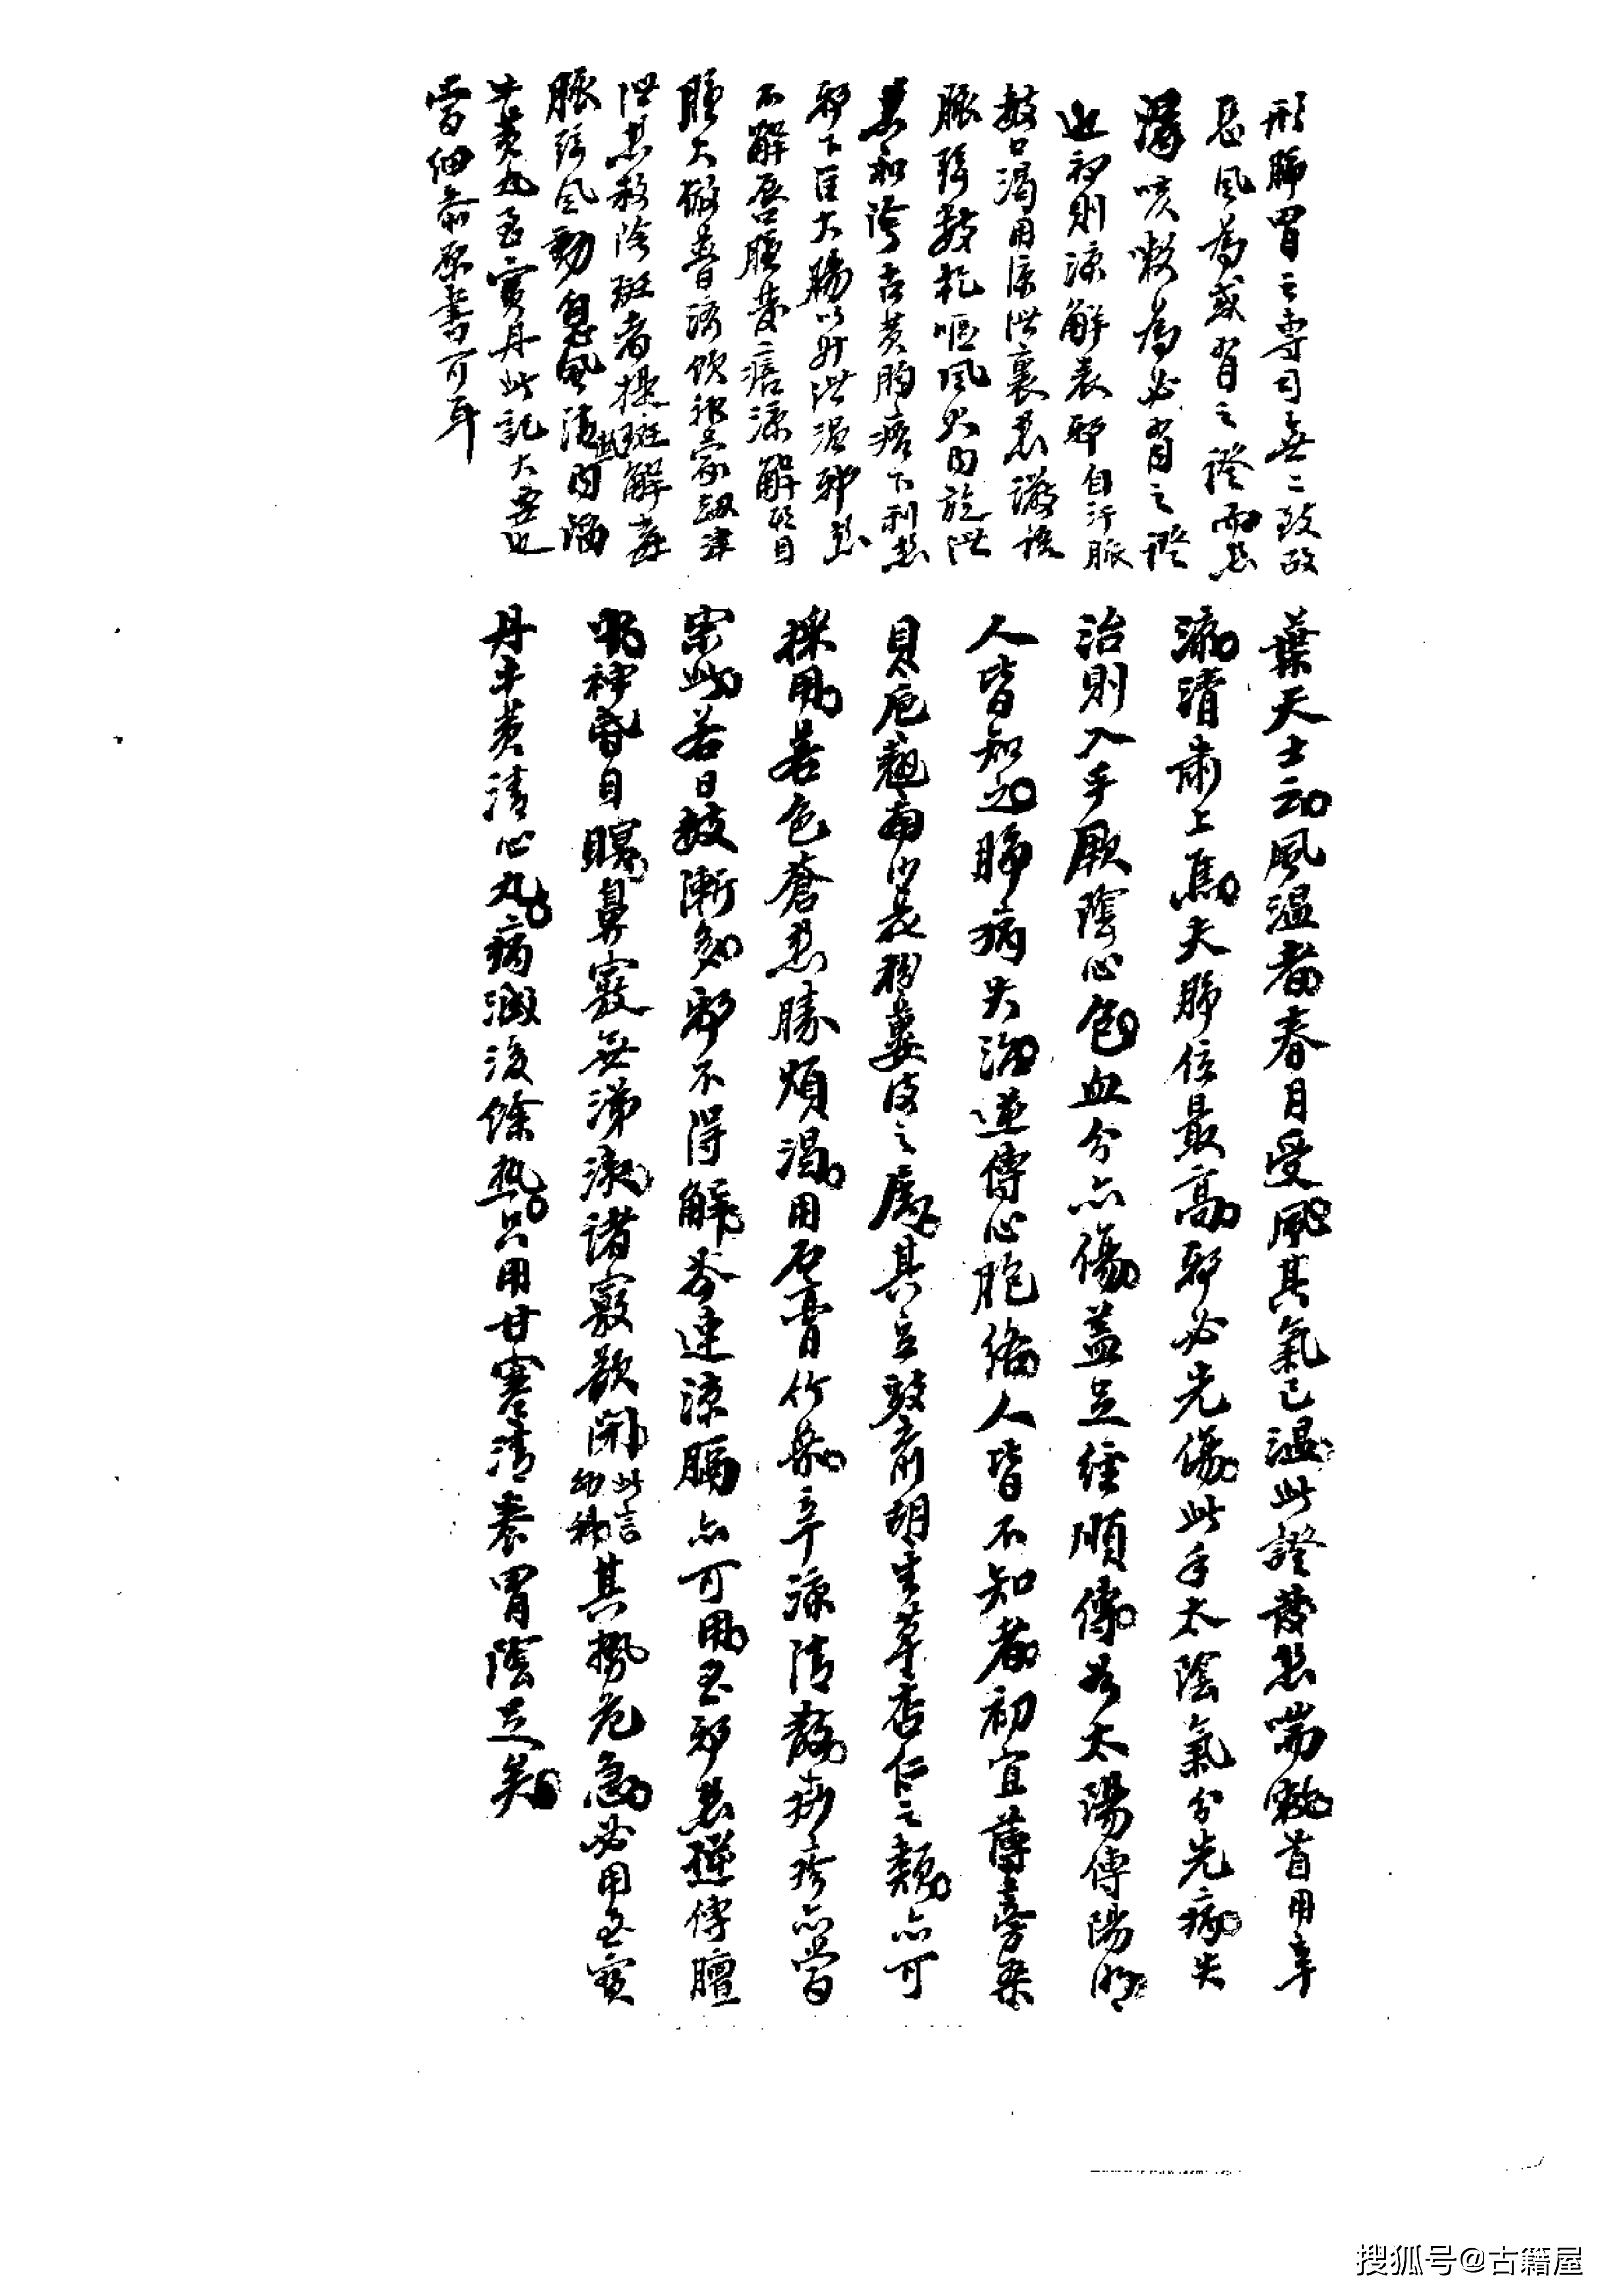 形肺胃之專司無二致故
惡風為或有之證而熱
咳嗽為必有之證
也初則涼解表邪自汗脈
數口渴用涼泄裏熱譫語
脈弦數風火內旋泄
黃和胸痞下利熱
邪下大腸以升泄溫邪熱
不解唇腫發瘄涼解
腫大倣普濟飲
泄熱救陰斑者提斑解毒
脈弦風動息風清熱內陷
牛黃丸至寶丹此記大要也
當細命原書可耳
葉天士云風溫者春月受風其氣已溫此證發熱嗽首用辛
涼清肅上焦夫肺位最高邪必先傷此手太陰氣分先病失
治則入手厥陰心包血分亦傷蓋足經順傳如太陽傳陽明
人皆知之肺病失治逆傳心胞絡人皆不知者初宜薄旁桑
貝翹南沙花蔞皮之屬其豆豉前胡杏仁之類亦可
採用若色蒼熱勝煩渴用石膏竹葉辛涼清散疹亦當
宗此若日數漸多邪不得解芩連涼膈亦可用至邪熱逆傳膻
中神昏目瞑鼻竅無涕淚諸竅欲閉此言幼稚其勢危急必用至寶
丹牛黃清心丸病減後餘熱只用甘寒清養胃陰足矣
搜狐号@古籍屋